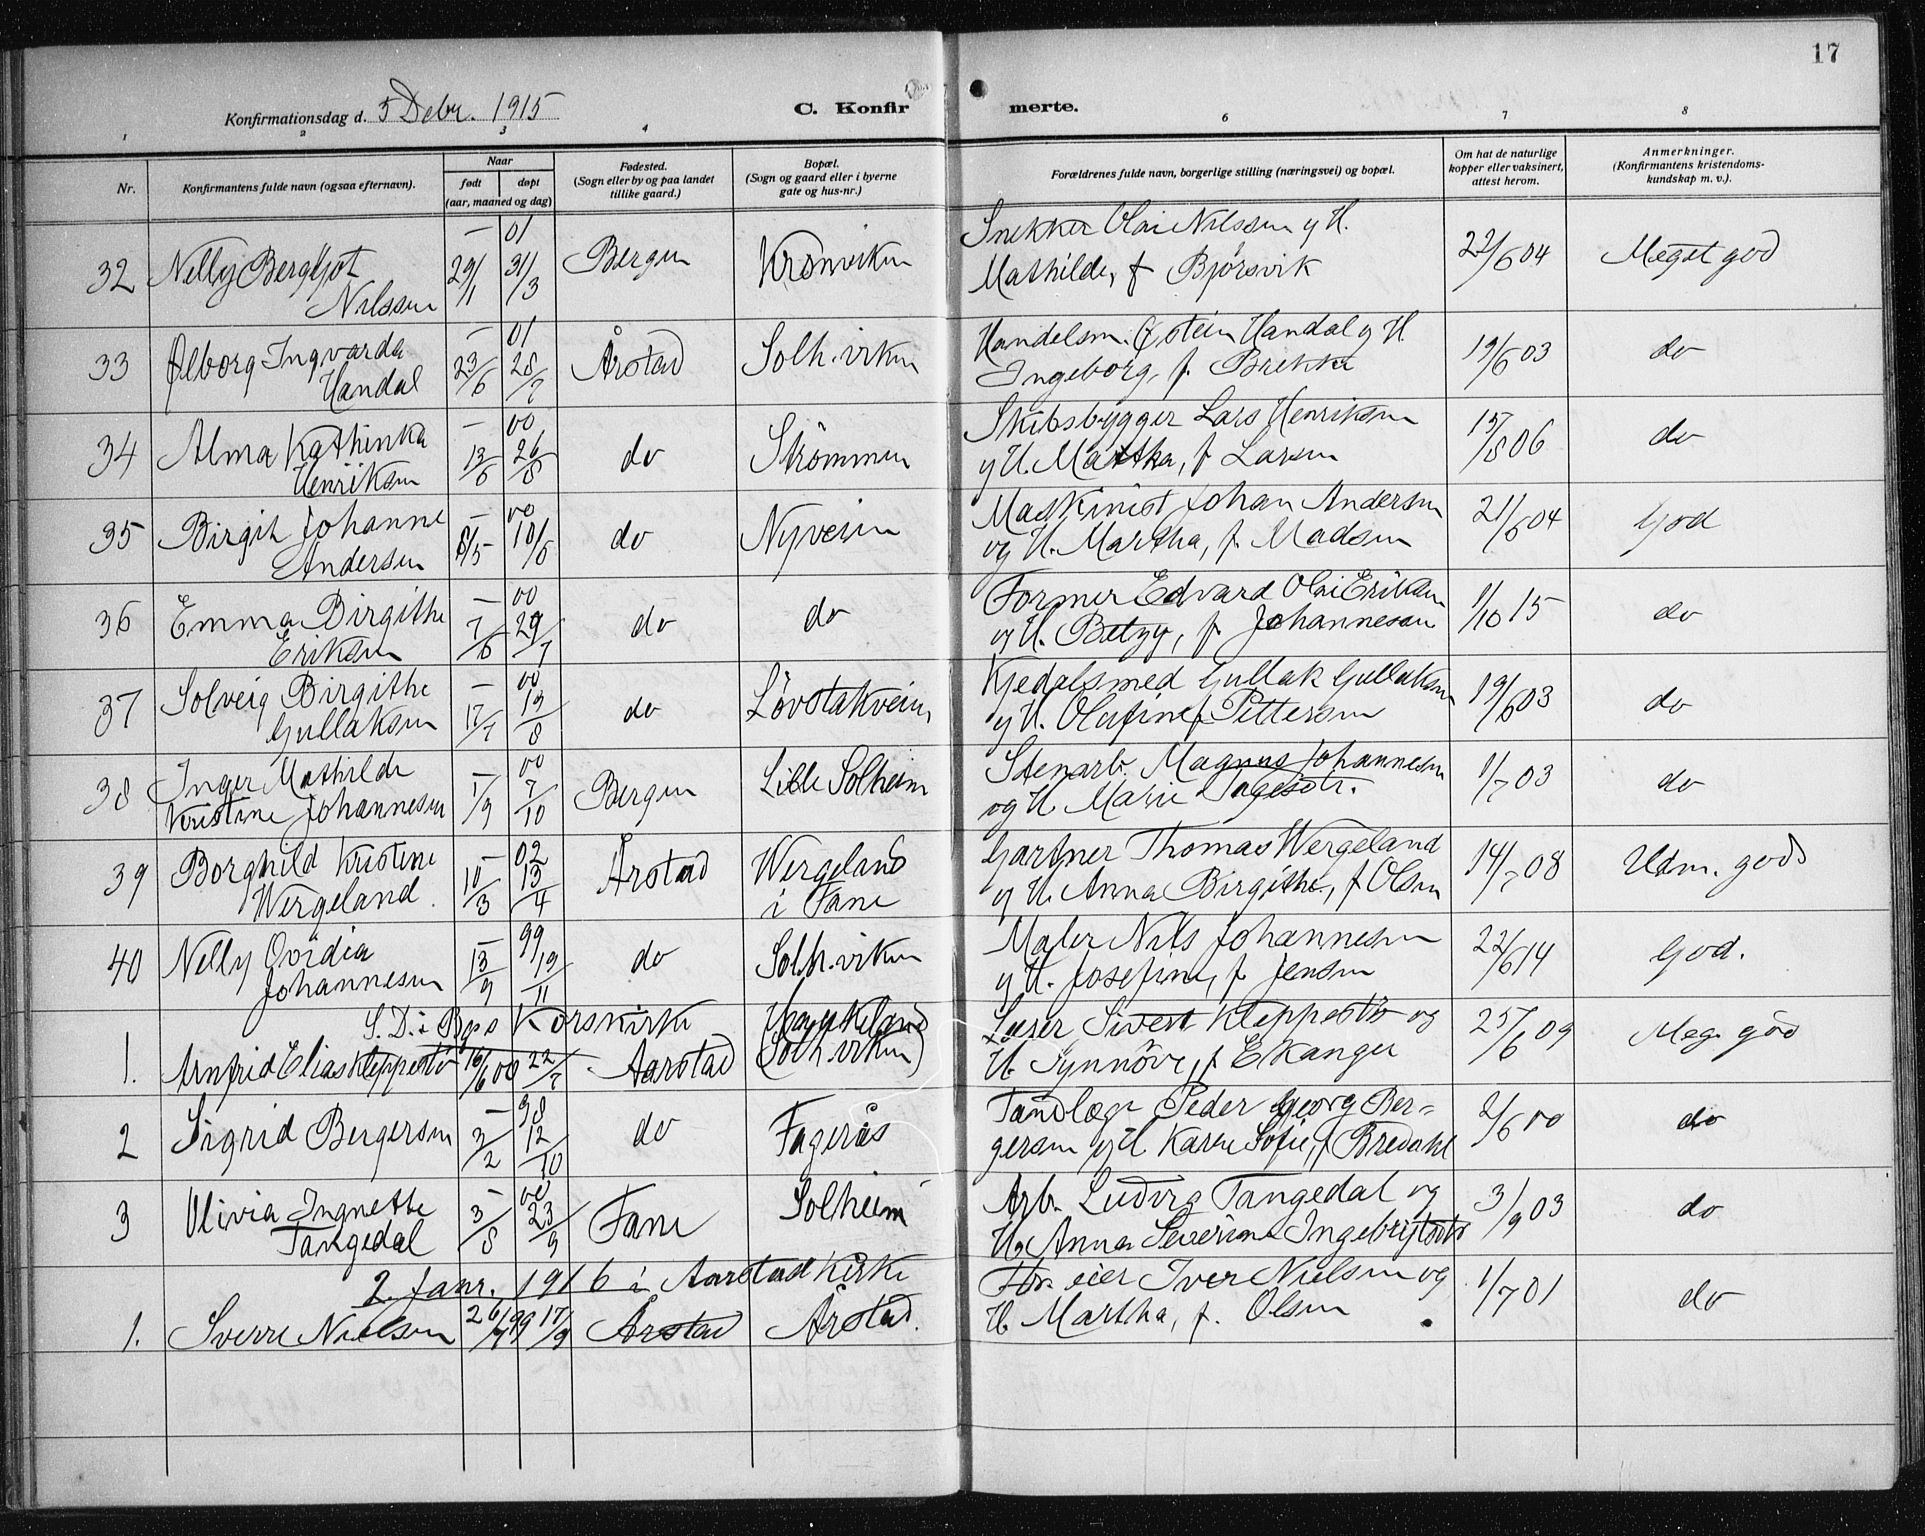 17
Konfirmationsdag d. 5 Debr. 1915 C. Konfirmerte.
1 2 3 4 6 7 8
Nr. Konfirmantens fulde navn (ogsaa efternavn). Naar født døpt (aar, maaned og dag) Fødested. (Sogn eller by og paa landet tillike gaard.) Bopæl. (Sogn og gaard eller i byerne gate og hus-nr.) Forældrenes fulde navn, borgerlige stilling (næringsvei) og bopæl. Om hat de naturlige kopper eller vaksinert, attest herom. Anmerkninger. (Konfirmantens kristendoms-kundskap m. v.).
32 Nelly Bergljot Nilssen – 29/1 01 31/3 Bergen Kronviken Snekker Olai Nilssen og H. Mathilde, f Bjørsvik 22/6 04 Meget god
33 Ølborg Ingvarda Handal – 23/6 01 28/7 Årstad Solh.viken Handelsm. Østein Handal og H Ingeborg, f. Brekke 19/6 03 do
34 Alma Kathinka Henriksen – 13/6 00 26/8 do Strømmen Skibsbygger Lars Henriksen og H. Martha, f Larsen 15/8 06 do
35 Birgit Johanne Andersen – 8/5 00 10/6 do Nyveien Maskinist Johan Andersen og H. Martha, f. Madsen 21/6 04 God
36 Emma Birgithe Eriksen – 7/6 00 29/7 do do Former Edvard Olai Eriksen og H. Betzy, f Johannesen 1/10 15 do
37 Solveig Birgithe Gullaksen – 17/7 00 19/8 do Løvstakveien Kjedelsmed Gullak Gullaksen og H. Olufine f Pettersen 19/6 03 do
38 Inger Mathilde Kristine Johannesen – 1/9 00 7/10 Bergen Lille Solheim Stenarb. Magnus Johannesen og H Marie 1/7 03 do
39 Borghild Kristine Wergeland – 10/3 02 13/4 Årstad Wergeland i Fane Gartner Thomas Wergeland og H. Anna Birgithe, f Olsen 14/7 08 Udm. god
40 Nelly Ovidia Johannesen – 13/9 99 19/11 do Solh.viken Maler Nils Johannesen og H. Josefine, f Jensen 22/6 14 God.
S. D. i Bgs Korskirke
1. Arnfrid Elias Kleppestø 16/6 00 22/7 Aarstad Haukeland (Solh.viken) Læser Sivert Kleppestø og H. Synnøve, f Ekanger 25/6 09 Meg. god
2 Sigrid Bergersen – 3/2 98 12/10 do Fagerås Tandlæge Peder Georg Bergersen og H Karen Sofie, f Bredahl 2/6 00 do
3 Olivia Ingnette Tangedal – 3/8 00 23/9 Fane Solheim Arb. Ludvig Tangedal og H. Anna Severine Ingebrigtsdtr 3/9 03 do
2. Janr. 1916 i Aarstad Kirke
1. Sverre Nielsen 99 17/9 Årstad Årstad. eier Iver Nielsen og H. Martha, f. Olsen 1/7 01 do